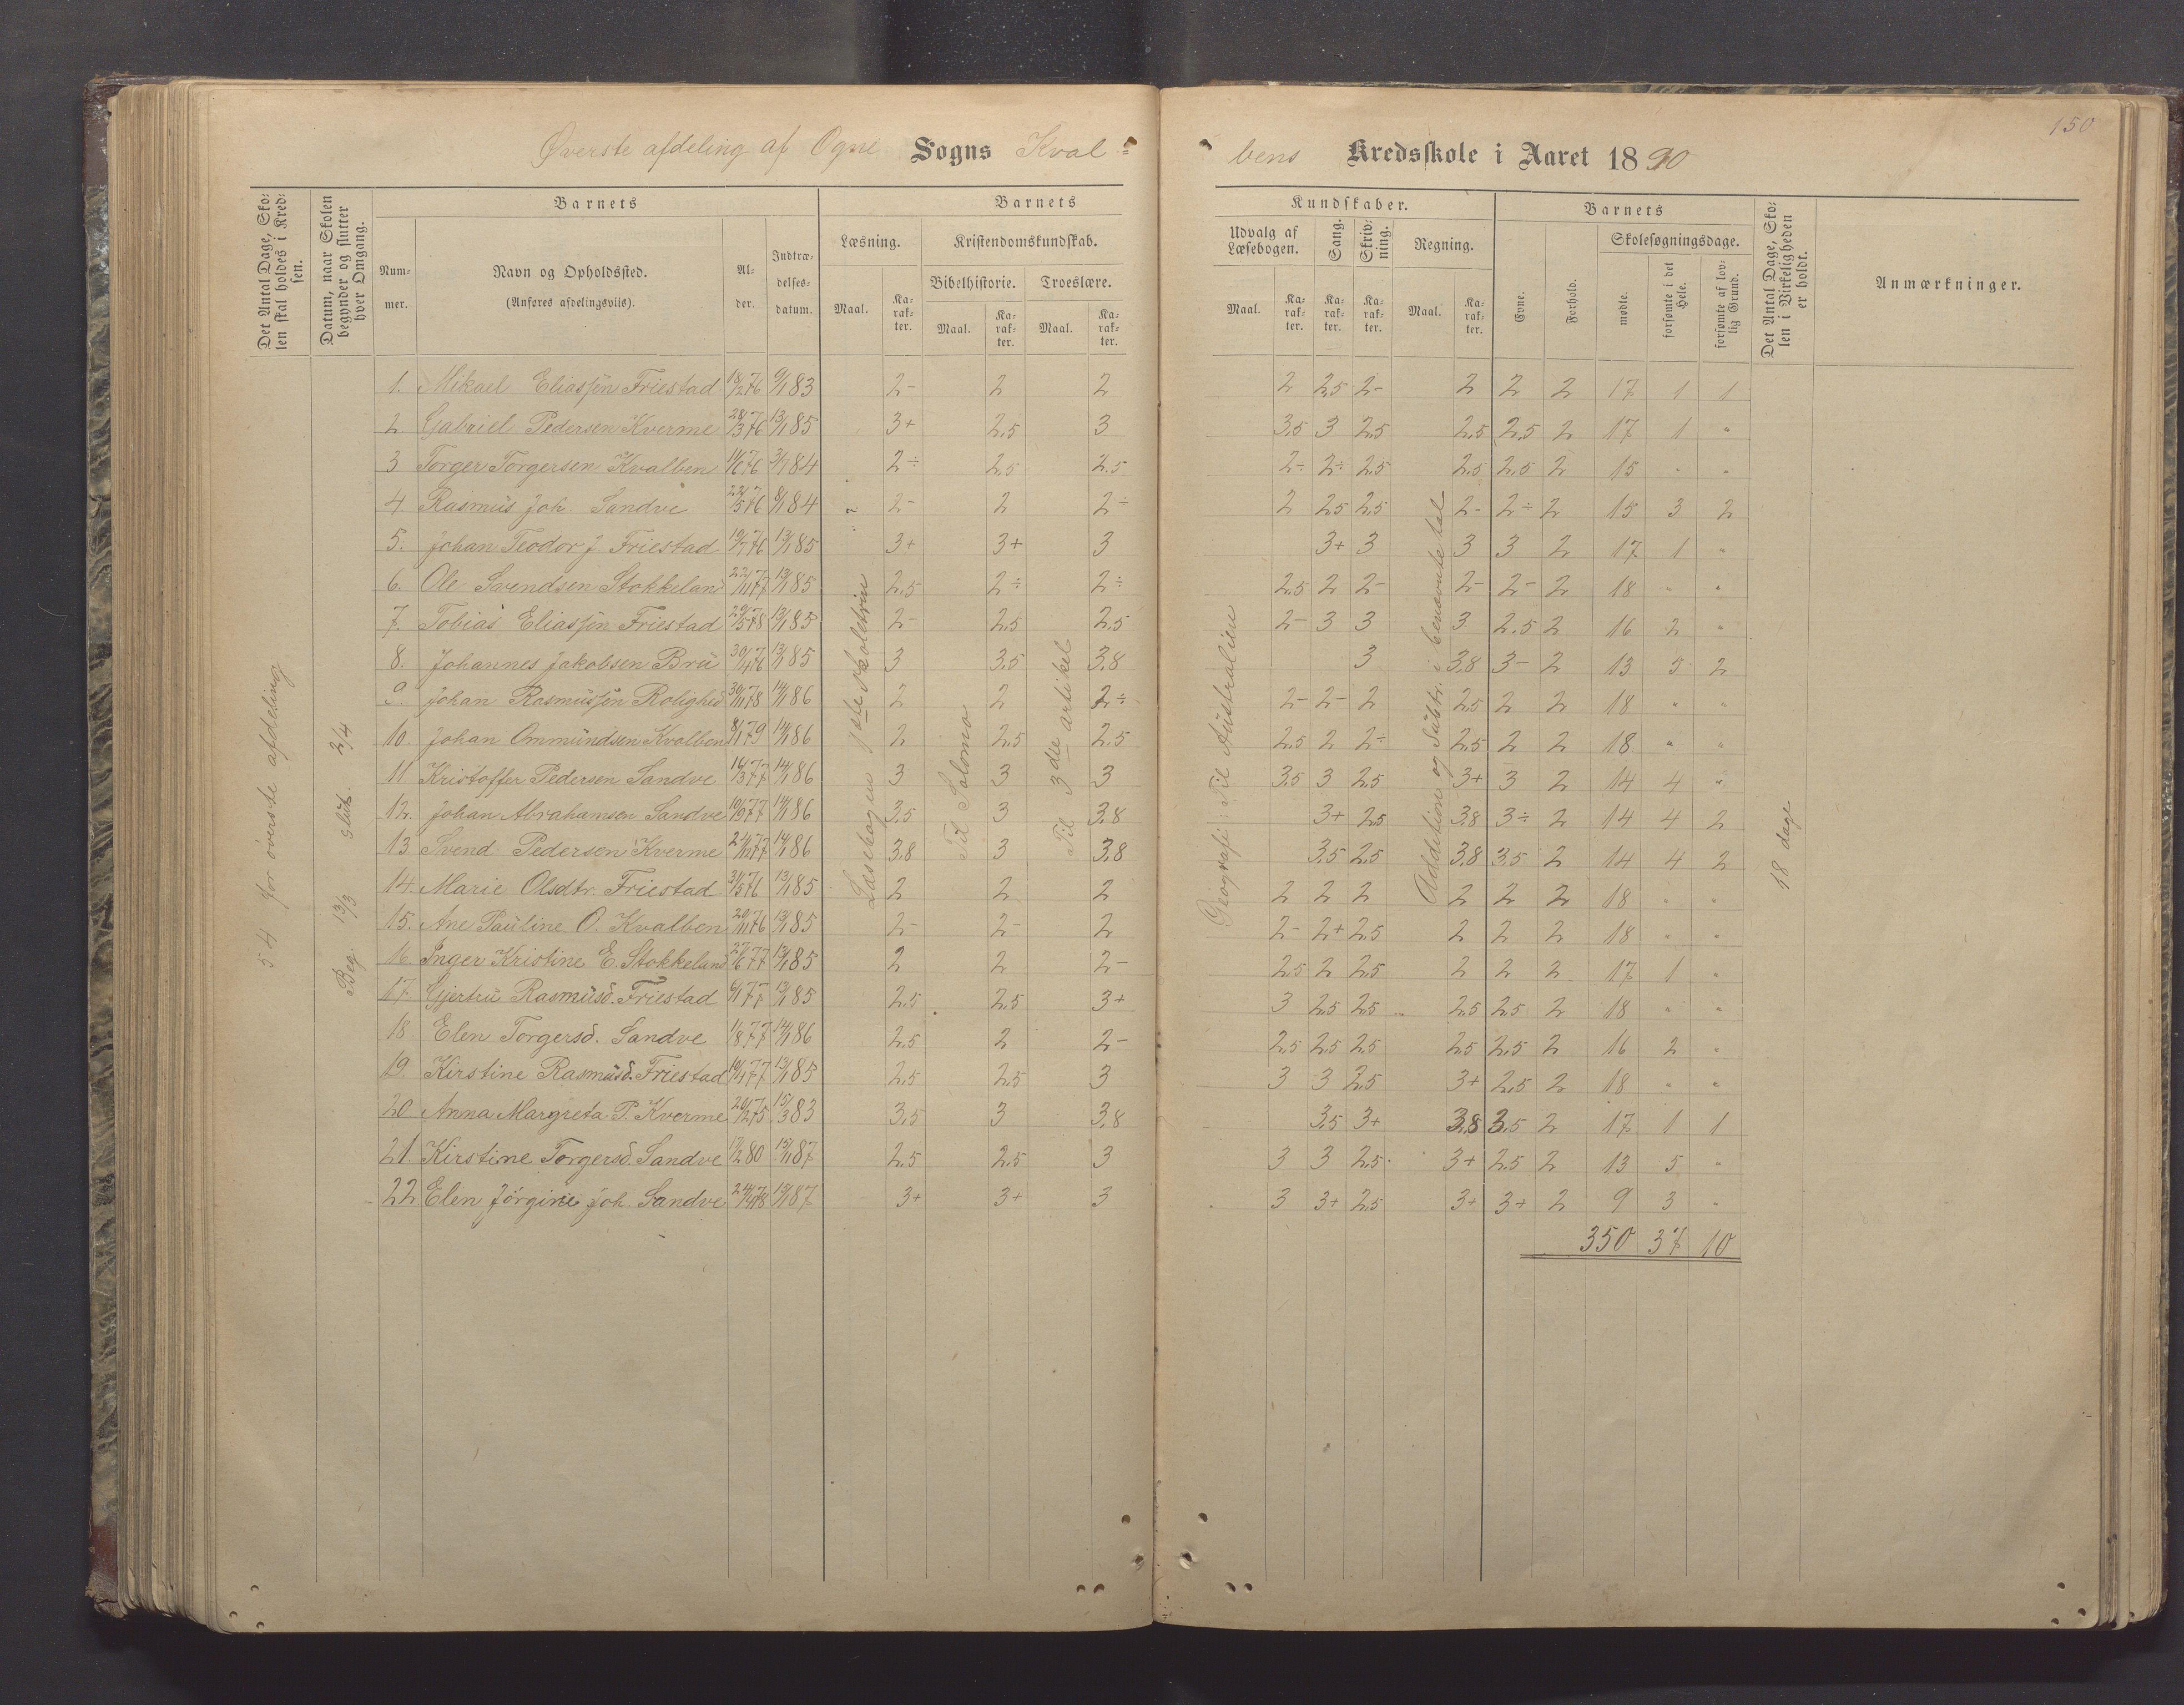 150
Øverste afdeling af Ogne Sogns Kval-
bens Kredsskole i Aaret 1890
Det Antal Dage, Sko-
len skal holdes i Kred-
sen.
Datum, naar Skolen
begynder og slutter
hver Omgang.
Barnets
Num-
mer.
Navn og Opholdssted.
(Anføres afdelingsviis).
Al-
der.
Indtræ-
delses-
datum.
Barnets
Læsning.
Maal.
Ka-
rak-
ter.
Kristendomskundskab.
Bibelhistorie.
Maal.
Ka-
rak-
ter.
Troeslære.
Maal.
Ka-
rak-
ter.
Kundskaber.
Udvalg af
Læsebogen.
Maal.
Ka-
rak-
ter.
Sang.
Ka-
rak-
ter.
Skriv-
ning.
Ka-
rak-
ter.
Regning.
Maal.
Ka-
rak-
ter.
Barnets
Evne.
Forhold.
Skolesøgningsdage.
mødte.
forsømte i det
Hele.
forsømte af lov-
lig Grund.
Det Antal Dage, Sko-
len i Virkeligheden
er holdt.
Anmærkninger.
54 for øverste afdeling
Beg. 13/3 slut. 2/4
Læsebogen 1ste skoletrin
Til Salomo
Til 3die artikel
Geografi: Til Australien
Addition og Subtr. i benævnte tal
18 dage
1. Mikael Eliassön Friestad 18/2 76 9/1 83 2- 2 2 2 2,5 2- 2 2 2 17 1 1
2. Gabriel Pedersen Kverme 28/3 76 13/1 85 3+ 2,5 3 3,5 3 2,5 2,5 2,5 2 17 1 "
3 Torger Torgersen Kvalben 14/6 76 3/1 84 2÷ 2,5 2,5 2÷ 2÷ 2,5 2,5 2,5 2 15 " "
4 Rasmus Joh. Sandve 22/5 76 8/1 84 2- 2 2÷ 2 2,5 2,5 2- 2÷ 2 15 3 2
5. Johan Teodor J Friestad 19/7 76 13/1 85 3+ 3+ 3 3+ 3 3 3 2 17 1 "
6. Ole Svendsen Stokkeland 22/11 77 13/1 85 2,5 2÷ 2÷ 2,5 2 2- 2- 2- 2 18 " "
7. Tobias Eliassön Friestad 29/5 78 13/1 85 2- 2,5 2,5 2- 3 3 3 2,5 2 16 2 "
8. Johannes Jakobsen Bru 30/4 76 13/1 85 3 3,5 3,8 3 3,8 3- 2 13 5 2
9. Johan Rasmussön Rolighed 30/11 78 14/1 86 2 2 2÷ 2- 2- 2 2,5 2 2 18 " "
10. Johan Ommundsen Kvalben 8/1 79 14/1 86 2 2,5 2,5 2,5 2 2÷ 2,5 2 2 18 " "
11 Kristoffer Pedersen Sandve 14/3 77 14/1 86 3 3 3 3,5 3 2,5 3+ 3 2 14 4 "
12. Johan Abrahamsen Sandve 10/9 77 14/1 86 3,5 3 3,8 3+ 2,5 3,8 3÷ 2 14 4 2
13 Svend Pedersen Kverme 24/12 77 14/1 86 3,8 3 3,8 3,5 2,5 3,8 3,5 2 14 4 2
14. Marie Olsdtr. Friestad 31/5 76 13/1 85 2 2 2 2 2 2 2 2 2 18 " "
15. Ane Pauline O. Kvalben 20/11 76 13/1 85 2- 2- 2 2- 2+ 2,5 2 2 2 18 " "
16. Inger Kristine E. Stokkeland 27/6 77 13/1 85 2 2 2- 2,5 2 2,5 2 2 2 17 1 "
17 Gjertru Rasmusd. Friestad 6/1 77 13/1 85 2,5 2,5 3+ 3 2,5 2,5 2,5 2,5 2 18 " "
18 Elen Torgersd. Sandve 1/8 77 14/1 86 2,5 2 2- 2,5 2,5 2,5 2,5 2,5 2 16 2 "
19. Kirstine Rasmusd. Friestad 10/1 77 13/1 85 2,5 2,5 3 3 3 2,5 3+ 2,5 2 18 " "
20 Anna Margreta P. Kverme 20/12 75 15/3 83 3,5 3 3,8 3,5 3+ 3,8 3,5 2 17 1 1
21. Kirstine Torgersd. Sandve 17/2 80 15/1 87 2,5 2,5 3 3 3 2,5 3+ 2,5 2 13 5 "
22 Elen Jörgine Joh. Sandve 24/4 78 15/1 87 3+ 3+ 3 3 3+ 2,5 3+ 3+ 2 9 3 "
350 37 10